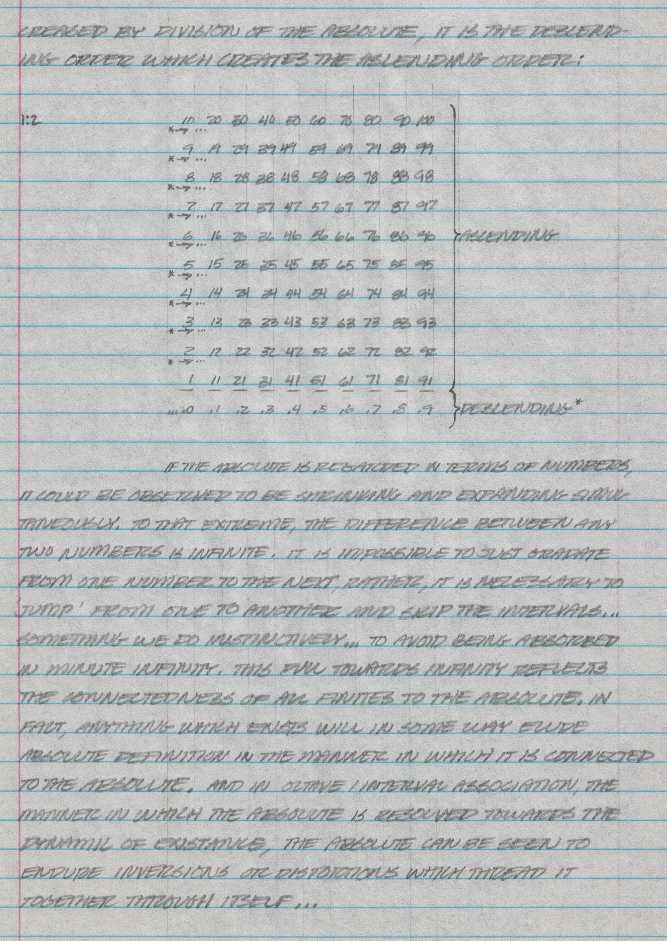 CREATED BY DIVISION OF THE ABSOLUTE, IT IS THE DESCEND-
ING ORDER WHICH CREATES THE ASCENDING ORDER:
1:2 10 20 30 40 50 60 70 80 90 100
*→ ...
9 19 29 39 49 59 69 79 89 99
*→ ...
8 18 28 38 48 58 68 78 88 98
*→ ...
7 17 27 37 47 57 67 77 87 97
*→ ...
6 16 26 36 46 56 66 76 86 96 ASCENDING
*→ ...
5 15 25 35 45 55 65 75 85 95
*→ ...
4 14 24 34 44 54 64 74 84 94
*→ ...
3 13 23 33 43 53 63 73 83 93
*→ ...
2 12 22 32 42 52 62 72 82 92
*→ ...
1 11 21 31 41 51 61 71 81 91
....0 .1 .2 .3 .4 .5 .6 .7 .8 .9 DESCENDING*
IF THE ABSOLUTE IS REGARDED IN TERMS OF NUMBERS,
IT COULD BE OBSERVED TO BE SHRINKING AND EXPANDING SIMUL
TANEOUSLY. TO THAT EXTREME, THE DIFFERENCE BETWEEN ANY
TWO NUMBERS IS INFINITE. IT IS IMPOSSIBLE TO JUST GRADATE
FROM ONE NUMBER TO THE NEXT, RATHER, IT IS NECESSARY TO
'JUMP' FROM ONE TO ANOTHER AND SKIP THE INTERVALS...
SOMETHING WE DO INSTINCTIVELY... TO AVOID BEING ABSORBED
IN MINUTE INFINITY. THIS PULL TOWARDS INFINITY REFLECTS
THE CONNECTEDNESS OF ALL FINITES TO THE ABSOLUTE. IN
FACT, ANYTHING WHICH EXISTS WILL IN SOME WAY ELUDE
ABSOLUTE DEFINITION IN THE MANNER IN WHICH IT IS CONNECTED
TO THE ABSOLUTE. AND IN OCTAVE / INTERVAL ASSOCIATION, THE
MANNER IN WHICH THE ABSOLUTE IS RESOLVED TOWARDS THE
DYNAMIC OF EXISTANCE, THE ABSOLUTE CAN BE SEEN TO
ENDURE INVERSIONS OR DISTORTIONS WHICH THREAD IT
TOGETHER THROUGH ITSELF...